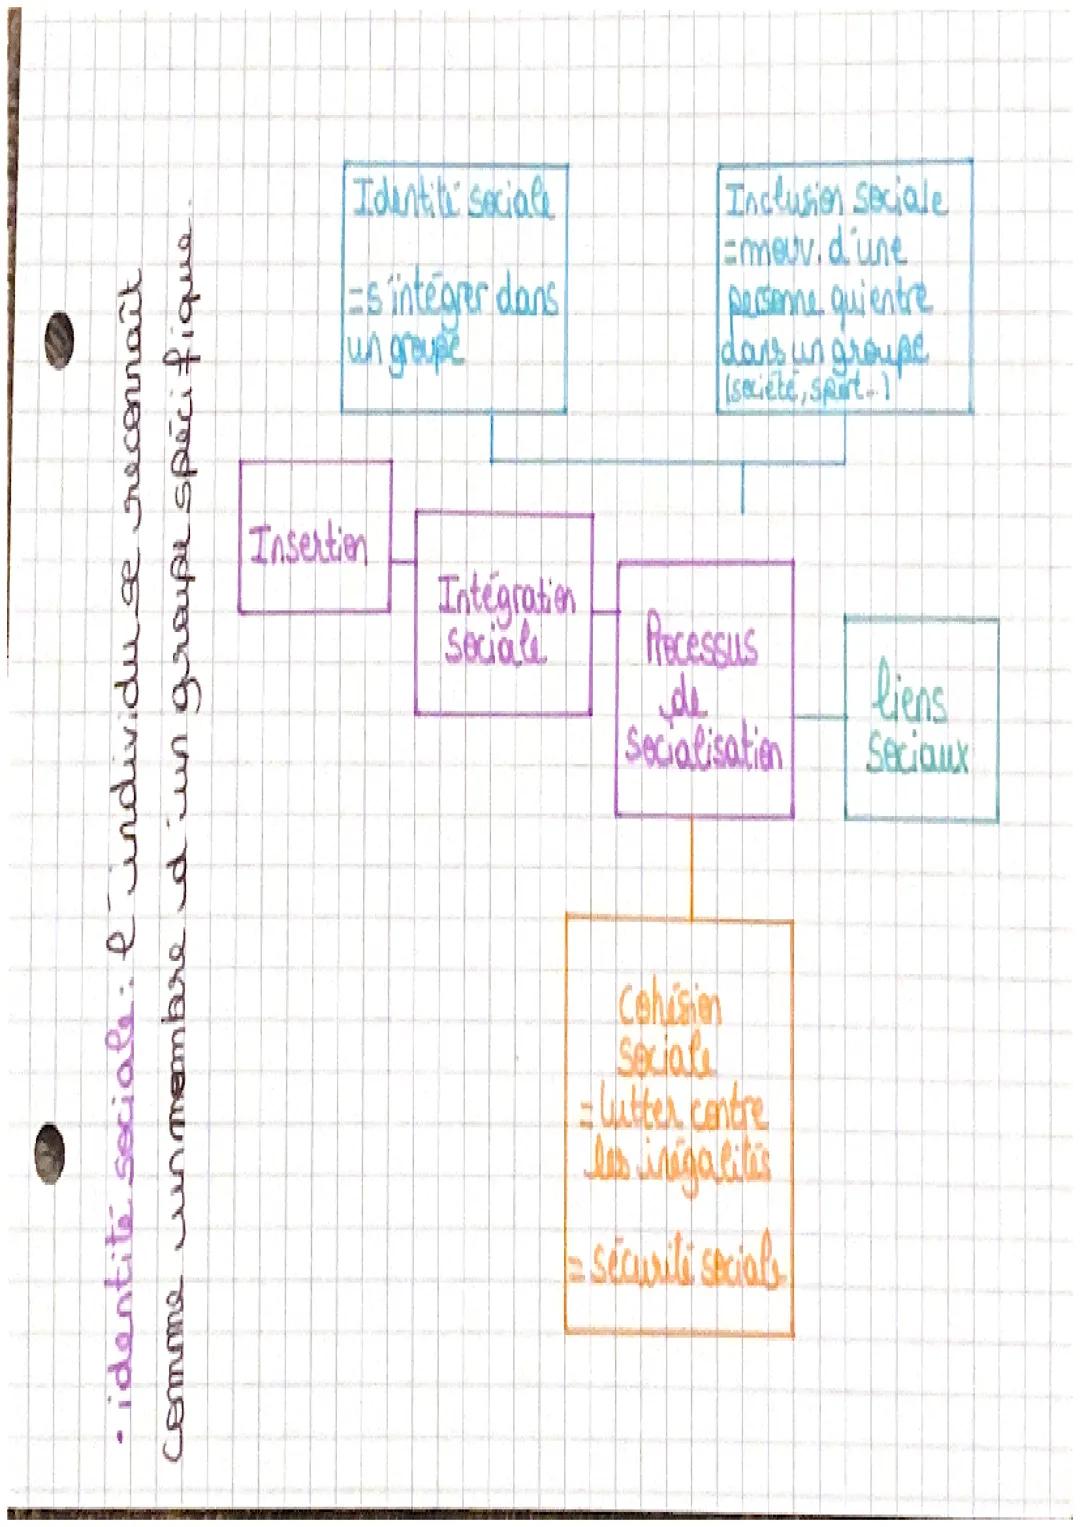 • identité sociale : l'individu se reconnaît
comme un membre d'un groupe spécifique.
Identité sociale
= s'intégrer dans
un groupe
Inclusion sociale
= mouv. d'une
personne qui entre
dans un groupe
(société, sport...)
Insertion
Intégration
sociale
Processus
de
socialisation
liens
sociaux
Cohésion
sociale
= lutter contre
les inégalités
= sécurité sociale